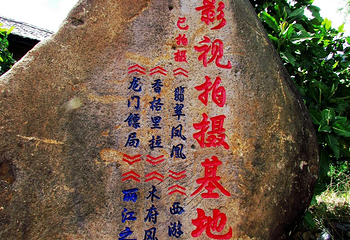 影视拍摄基地
已拍摄《翡翠凤凰》《西游
《香格里拉》《木府风
《龙门镖局》《丽江之